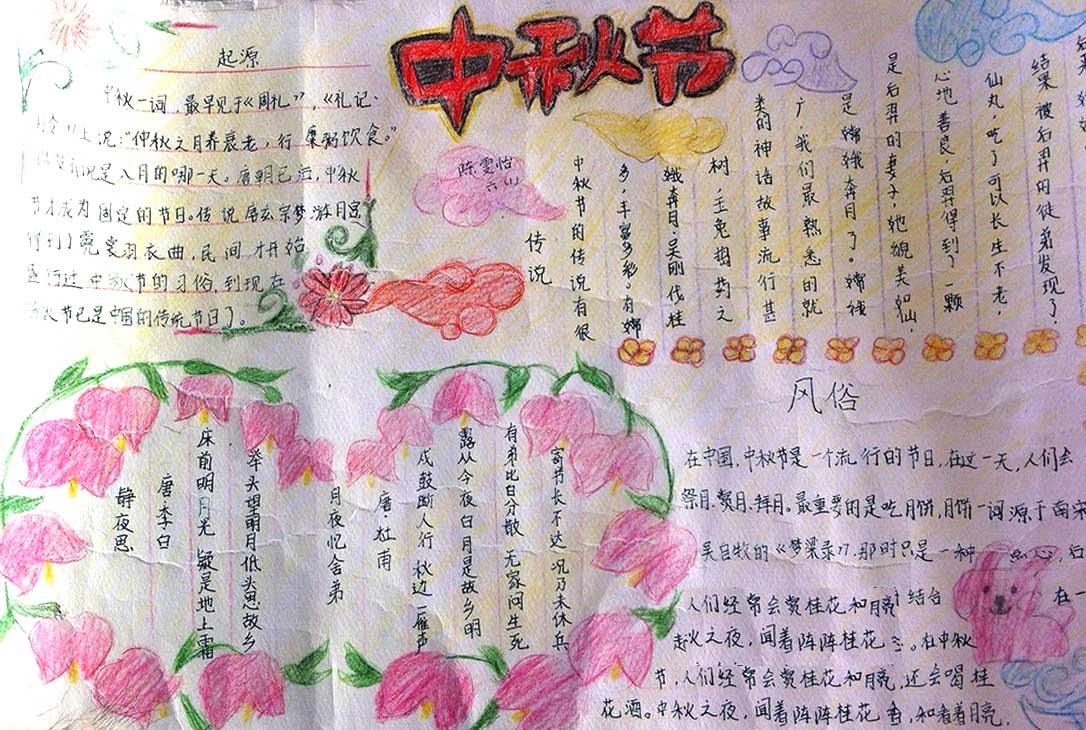 中秋节
陈雯怡
六(1)
起源
中秋一词,最早见于《周礼》,《礼记·
上说:"仲秋之月养衰老,行糜粥饮食。"
说是八月的哪一天。唐朝已后,中秋
节才成为固定的节日。传说唐玄宗梦游月宫
得到了霓裳羽衣曲,民间才开始
盛行过中秋节的习俗,到现在
秋节已是中国的传统节日了。
传说
中秋节的传说有很
多,丰富多彩。有嫦
娥奔月·吴刚伐桂
树,玉兔捣药之
类的神话故事流行甚
广,我们最熟悉的就
是嫦娥奔月了。嫦娥
是后羿的妻子,她貌美如仙,
心地善良,后羿得到了一颗
仙丸,吃了可以长生不老,
结果被后羿的徒弟发现了,
静夜思
唐·李白
床前明月光 疑是地上霜
举头望明月低头思故乡
月夜忆舍弟
唐·杜甫
戍鼓断人行 秋边一雁声
露从今夜白月是故乡明
有弟比白分散 无家问生死
寄节长不达 况乃未休兵
风俗
在中国,中秋节是一个流行的节日,在这一天,人们会
祭月、赏月、拜月。最重要的是吃月饼,月饼一词源于南宋
吴自牧的《梦梁录》,那时只是一种 点心,后
人们经常会赏桂花和月 结合 在一
起火之夜,闻着阵阵桂花 。在中秋
节,人们经常会赏桂花和月亮,还会喝桂
花酒。中秋之夜,闻着阵阵桂花香,和看着月亮.